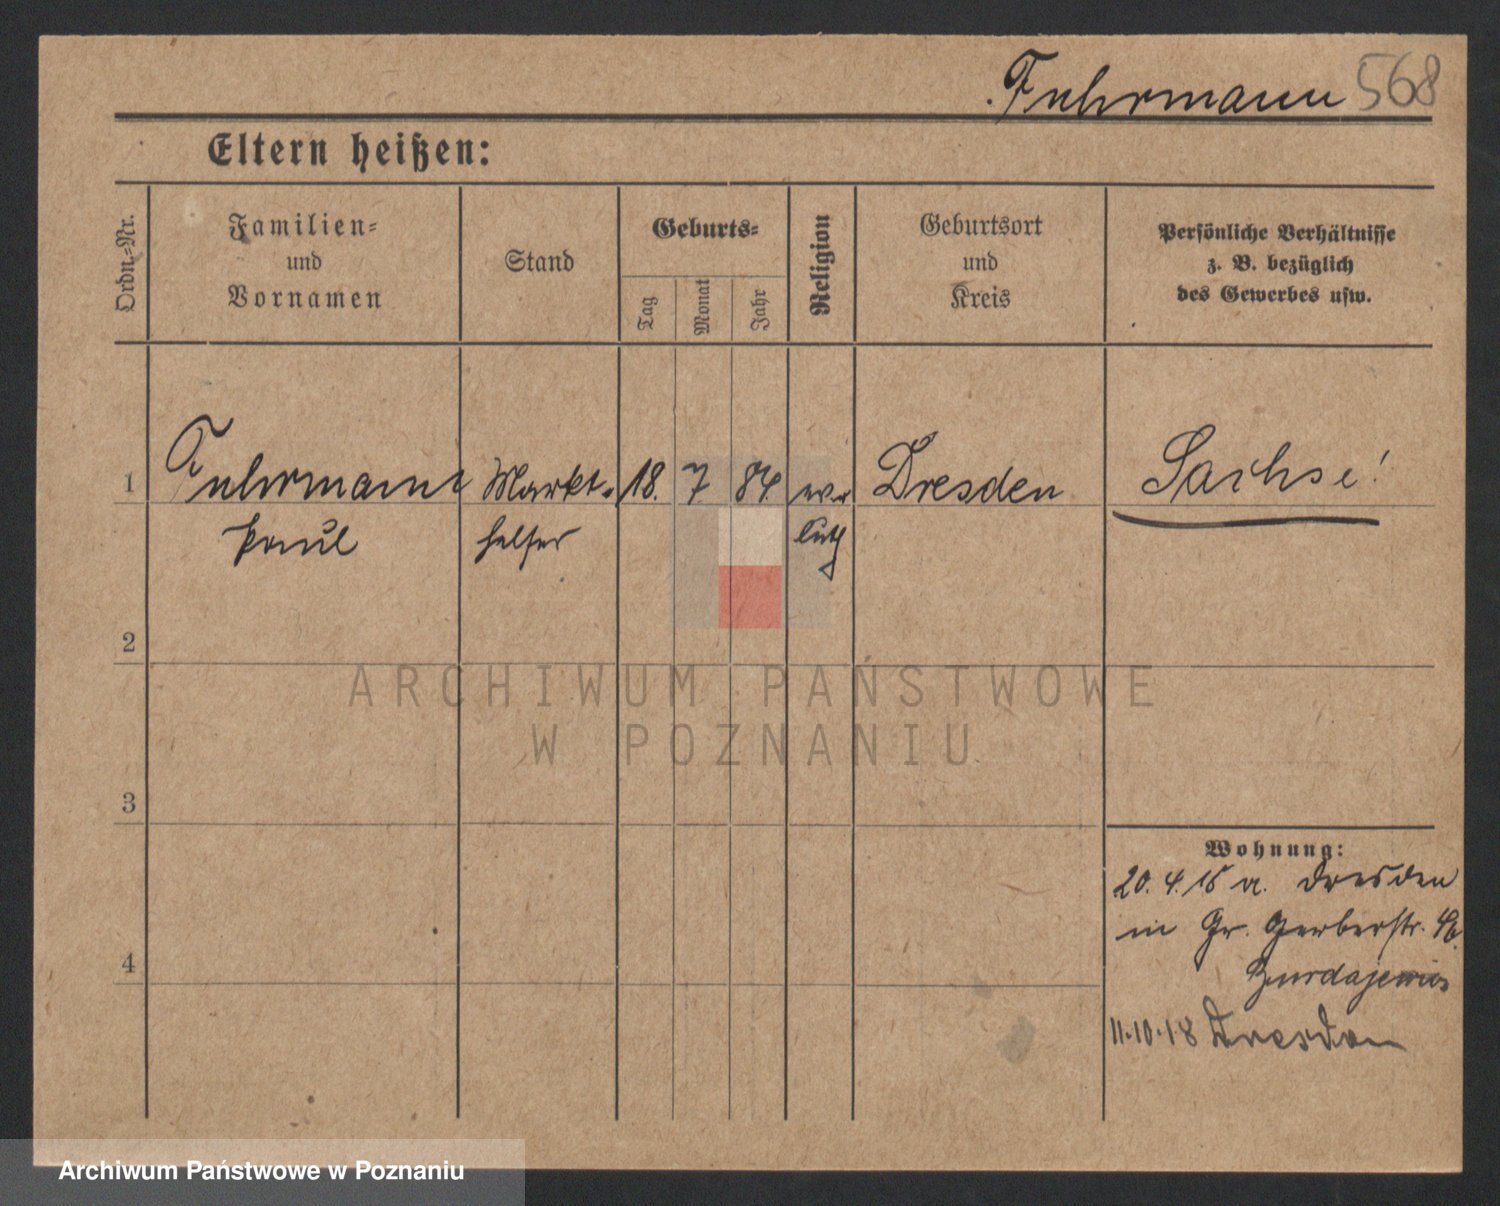 Fuhrmann 568
Eltern heißen:
Ordn.-Nr.
Familien-
und
Vornamen
Stand
Geburts-
Tag
Monat
Jahr
Religion
Geburtsort
und
Kreis
Persönliche Verhältnisse
z. B. bezüglich
des Gewerbes usw.
1 Fuhrmann Markt- 18. 7 84. ev. Dresden Sachse!
Paul helfer luth
2
ARCHIWUM PAŃSTWOWE
W POZNANIU
3
Wohnung:
20. 4. 15 a. Dresden
in Gr. Gerberstr. 46.
4
11.10.18 Dresden
Archiwum Państwowe w Poznaniu